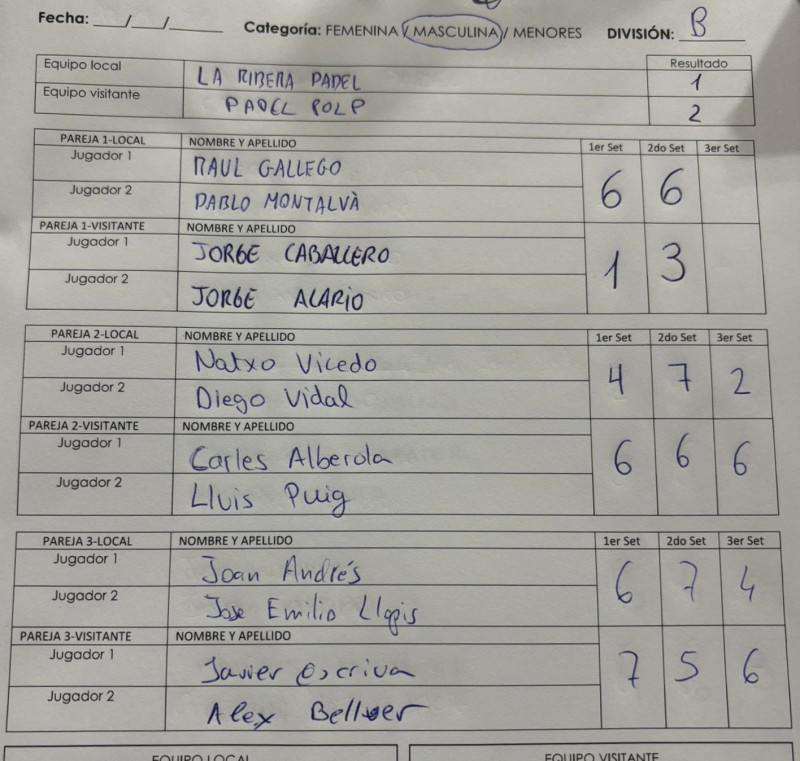 Fecha: ___/___/______ Categoría: FEMENINA / MASCULINA / MENORES DIVISIÓN: B
Equipo local LA RIBERA PADEL Resultado 1
Equipo visitante PADEL POLP 2
PAREJA 1-LOCAL NOMBRE Y APELLIDO 1er Set 2do Set 3er Set
Jugador 1 RAUL GALLEGO 6 6
Jugador 2 PABLO MONTALVÀ
PAREJA 1-VISITANTE NOMBRE Y APELLIDO
Jugador 1 JORGE CABALLERO 1 3
Jugador 2 JORGE ALARIO
PAREJA 2-LOCAL NOMBRE Y APELLIDO 1er Set 2do Set 3er Set
Jugador 1 Natxo Vicedo 4 7 2
Jugador 2 Diego Vidal
PAREJA 2-VISITANTE NOMBRE Y APELLIDO
Jugador 1 Carles Alberola 6 6 6
Jugador 2 Lluis Puig
PAREJA 3-LOCAL NOMBRE Y APELLIDO 1er Set 2do Set 3er Set
Jugador 1 Joan Andrés 6 7 4
Jugador 2 Jose Emilio Llopis
PAREJA 3-VISITANTE NOMBRE Y APELLIDO
Jugador 1 Javier Escriva 7 5 6
Jugador 2 Alex Bellver
EQUIPO LOCAL EQUIPO VISITANTE